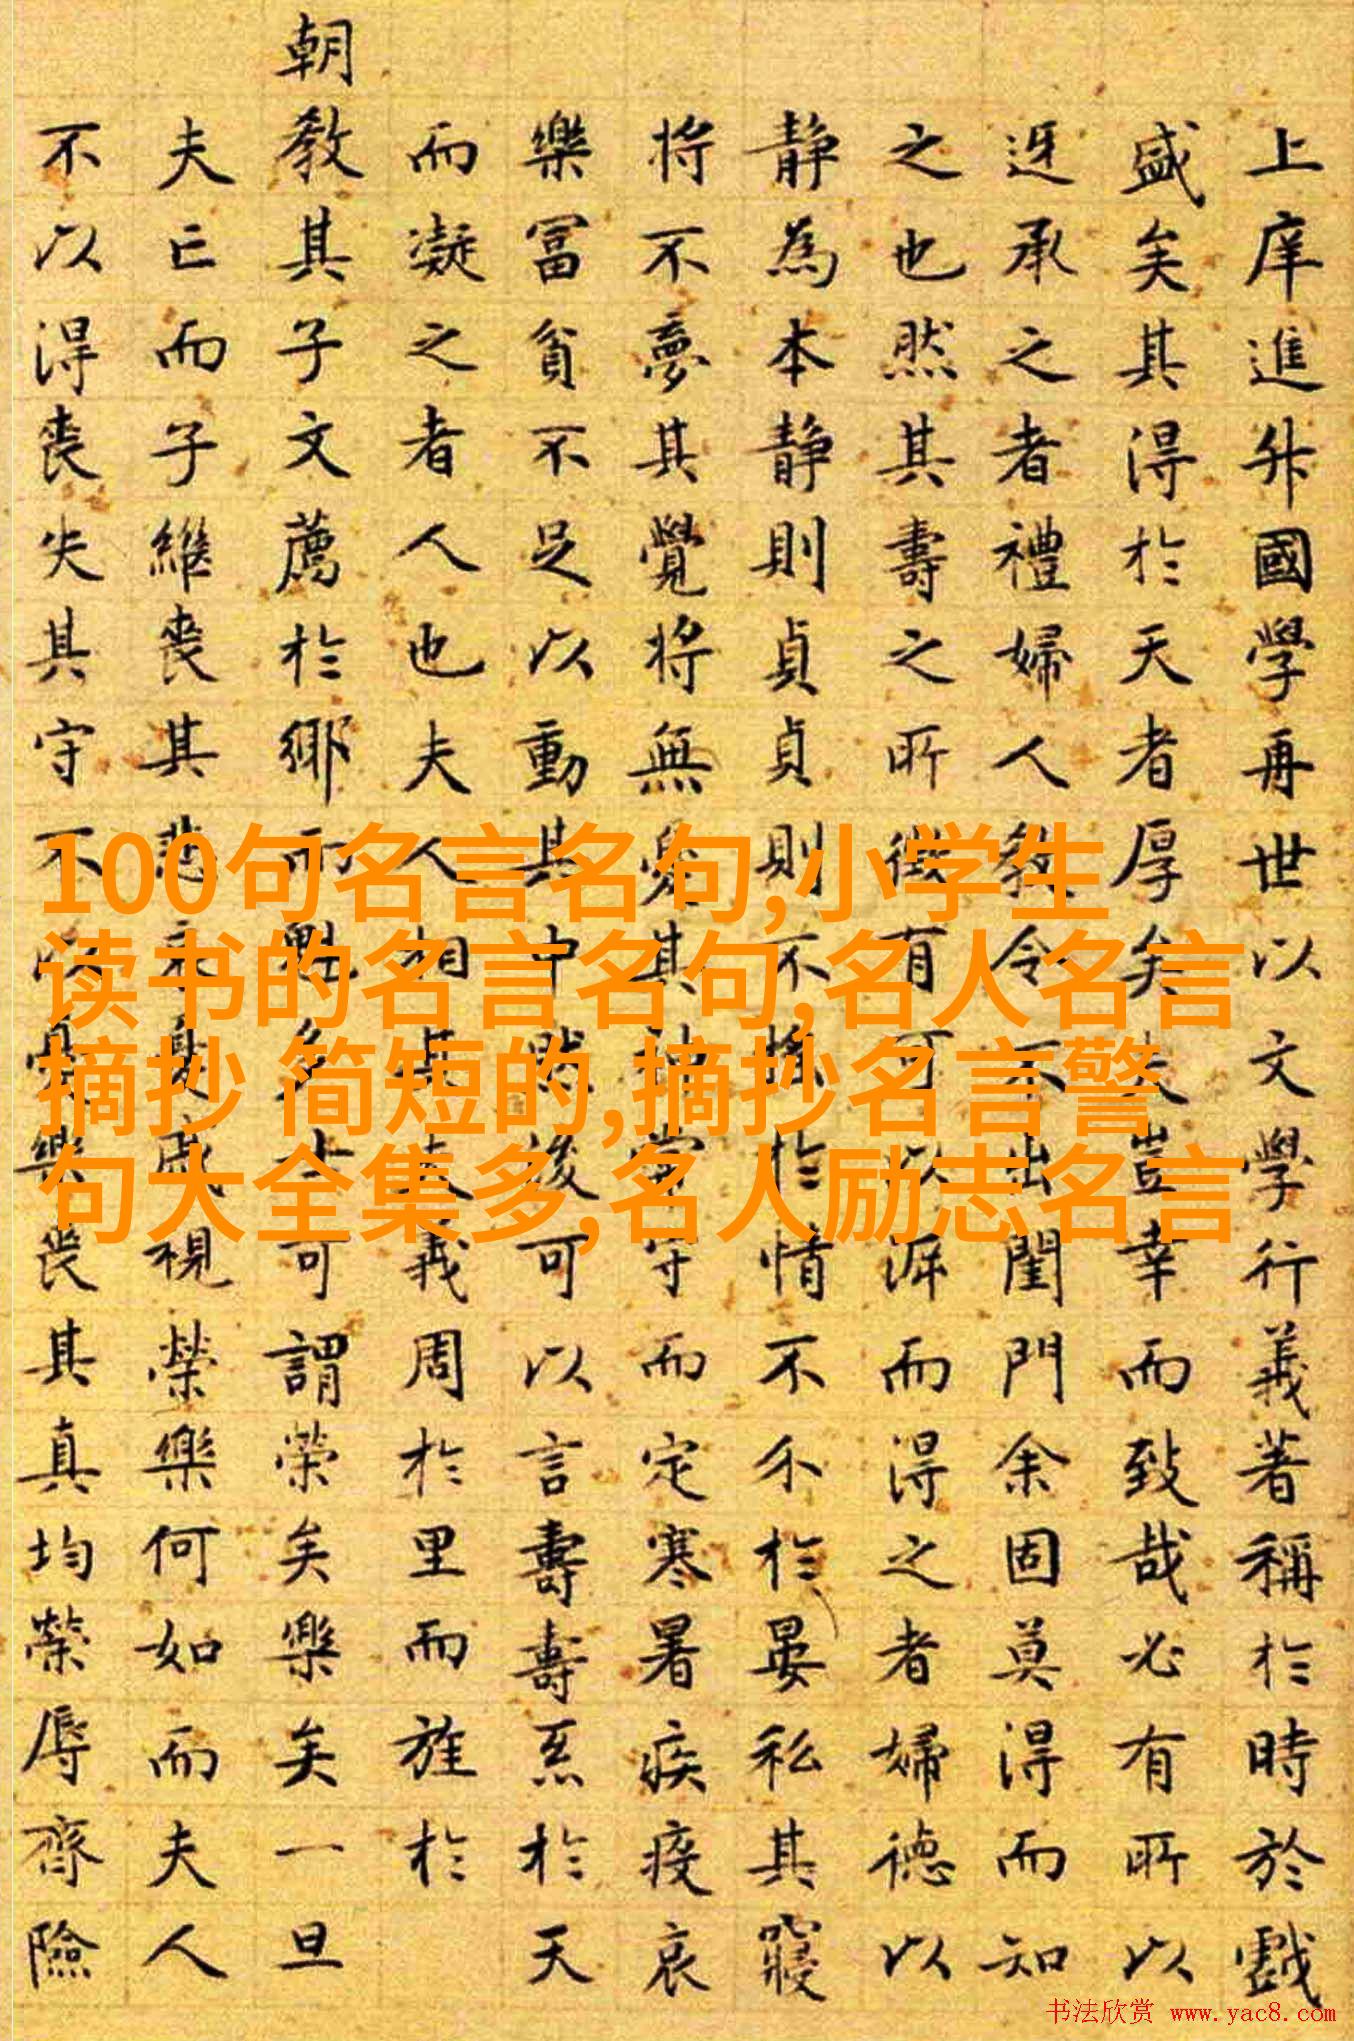 上庠進升國學再世以文學行義著稱於時於戲
盛矣其得於天者厚矣夫豈幸而致哉必有所以
迓承之者禮婦人教令不出閨門余固莫得而知
之也然其壽之所徵有可以涯而得之者婦德以
静為本静則貞貞則不 於情不 於晏私其寝
将不夢其覺将無憂其神 守而定寒暑疾疫哀
樂冨貧不足以動其中然後可以言壽壽 於天
而凝之者人也夫人相 義周於里而 於
朝教其子文薦於鄉而 士可謂荣矣樂矣一旦
夫亡而子繼丧其悲 戚視榮樂何如而夫人
不以得丧失其守不以 樂丧其真均榮辱齊險
100句名言名句,小学生
读书的名言名句,名人名言
摘抄 简短的,摘抄名言警
句大全集多,名人励志名言
书法欣赏 www.yac8.com